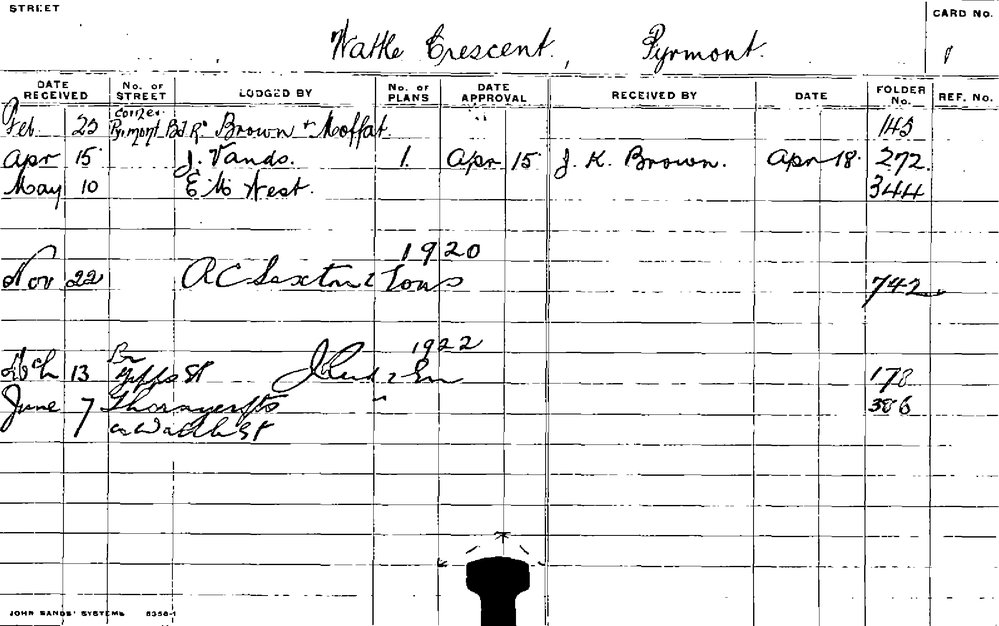 STREET
CARD No.
Wattle Crescent, Pyrmont.
1
DATE RECEIVED No. OF STREET LODGED BY No. OF PLANS DATE APPROVAL RECEIVED BY DATE FOLDER No. REF. No.
corner
Feb 25 Pyrmont Bd Rd Brown & Moffat. 145
Apr 15 J. Vands. 1. Apr 15 J. K. Brown. Apr 18. 272.
May 10 E. W. West. 344
1920
Nov 22 A C Saxton & Sons 742
1922
Mch 13 Gipps St & Son 178
June 7 Thornycrofts " 386
co Wattle St
JOHN SANDS' SYSTEMS 8356-1